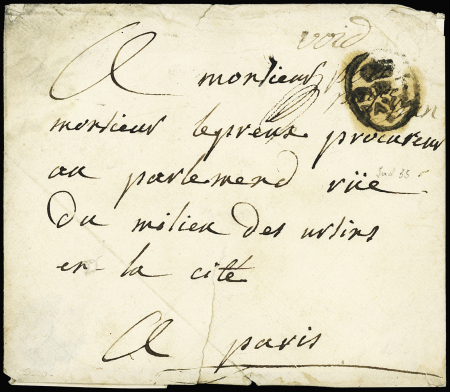 void
A monsieur
monsieur lepreux procureur
au parlemend rüe
du milieu des ursins
en la cité
A paris